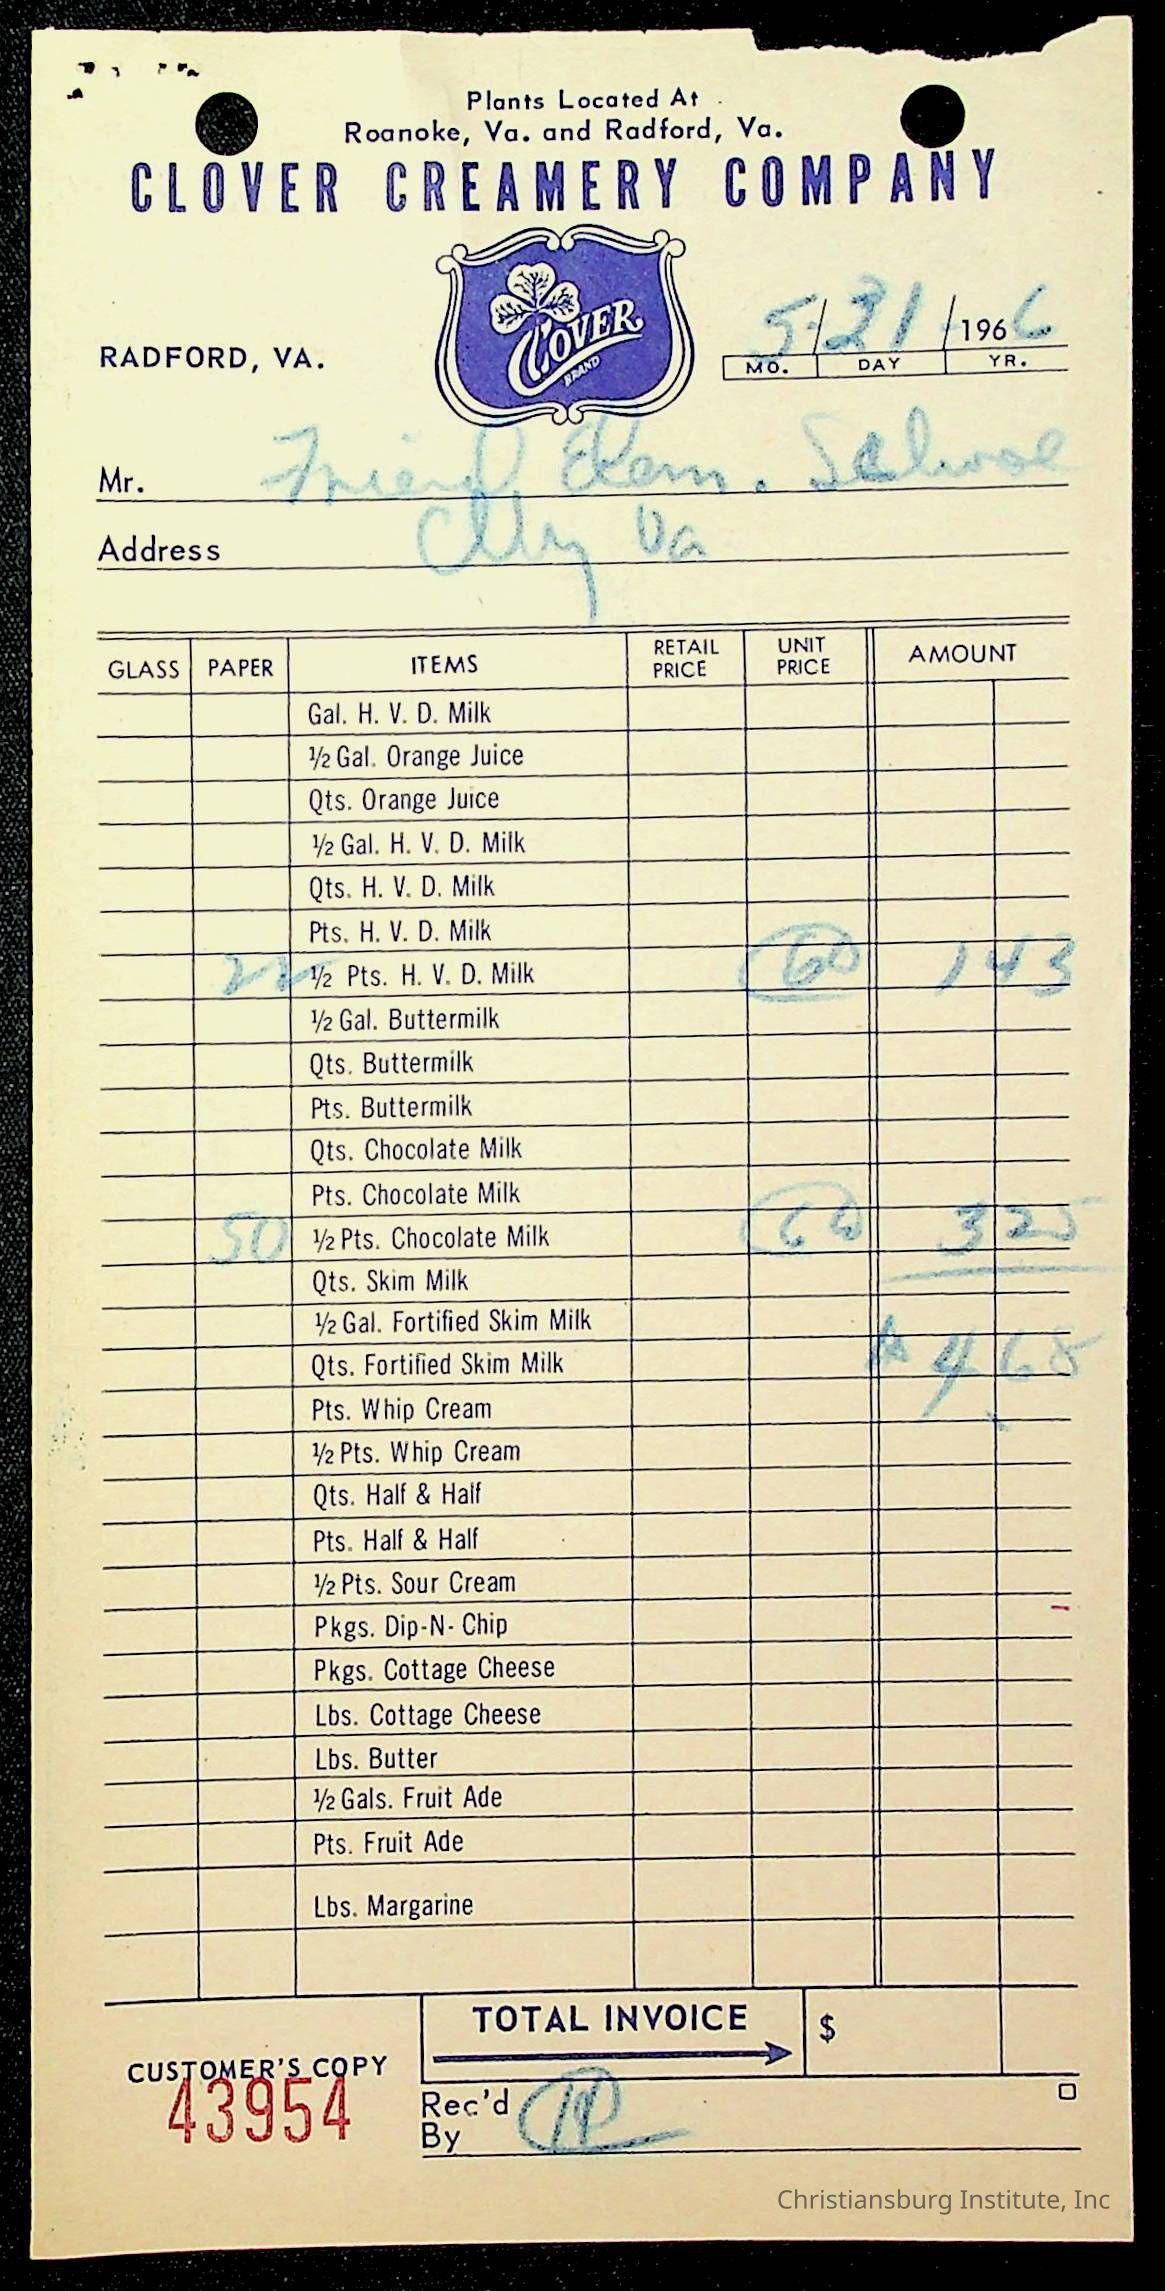 Plants Located At
Roanoke, Va. and Radford, Va.
CLOVER CREAMERY COMPANY
CLOVER
BRAND
RADFORD, VA.
5/31/1966
MO. DAY YR.
Mr. Friend Elem. School
Address Va
GLASS PAPER ITEMS RETAIL PRICE UNIT PRICE AMOUNT
Gal. H. V. D. Milk
½ Gal. Orange Juice
Qts. Orange Juice
½ Gal. H. V. D. Milk
Qts. H. V. D. Milk
Pts. H. V. D. Milk
22 ½ Pts. H. V. D. Milk 60 1 43
½ Gal. Buttermilk
Qts. Buttermilk
Pts. Buttermilk
Qts. Chocolate Milk
Pts. Chocolate Milk
50 ½ Pts. Chocolate Milk 60 3 25
Qts. Skim Milk
½ Gal. Fortified Skim Milk
Qts. Fortified Skim Milk 4 68
Pts. Whip Cream
½ Pts. Whip Cream
Qts. Half & Half
Pts. Half & Half
½ Pts. Sour Cream
Pkgs. Dip-N-Chip
Pkgs. Cottage Cheese
Lbs. Cottage Cheese
Lbs. Butter
½ Gals. Fruit Ade
Pts. Fruit Ade
Lbs. Margarine
TOTAL INVOICE $
CUSTOMER'S COPY
43954
Rec'd
By
Christiansburg Institute, Inc